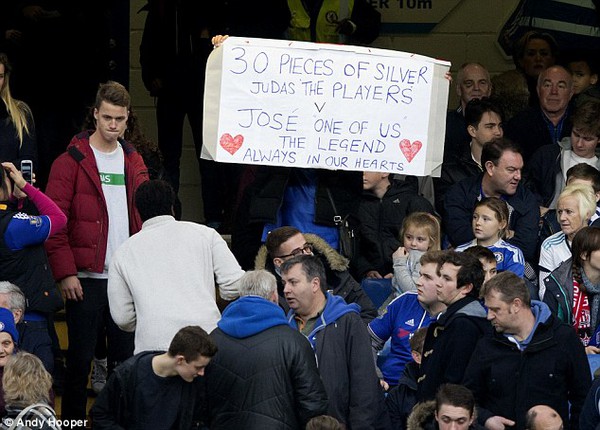 10m
30 PIECES OF SILVER
JUDAS THE PLAYERS
V
JOSÉ 'ONE OF US'
THE LEGEND
ALWAYS IN OUR HEARTS
© Andy Hooper